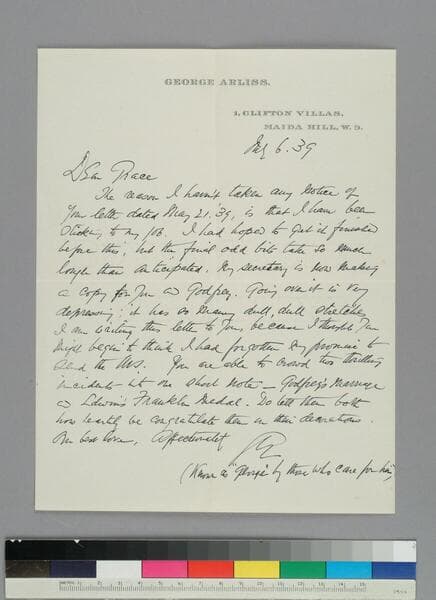 GEORGE ARLISS.
1, CLIFTON VILLAS,
MAIDA HILL, W. 9.
July 6. 39
Dear Grace
The reason I haven't taken any notice of
your letter dated May 21. 39, is that I have been
sticking to my job. I had hoped to get it finished
before this, but the final odd bits take so much
longer than anticipated. My secretary is now making
a copy for you & Godfrey. Going over it is very
depressing; it has so many dull, dull stretches.
I am writing this letter to you, because I thought you
might begin to think I had forgotten my promise to
send the MS. You are able to crowd two thrilling
incidents into one short note — Godfrey's Marriage
& Edwin's Franklin Medal. Do tell them both
how heartily we congratulate them on their decorations.
Our best love, Affectionately
GA
(Known as "George" by those who care for him)